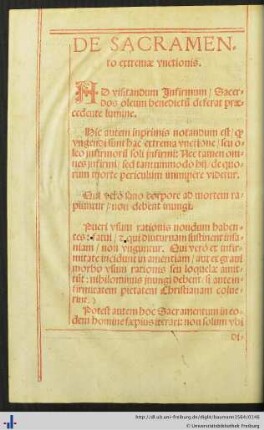 DE SACRAMEN⸗
to extremæ vnctionis.
AD visitandum Infirmum / Sacer⸗
dos oleum benedictū deferat præ⸗
cedente lumine.
Hic autem inprimis notandum est / q
vngendi sunt hac extrema vnctione / seu o⸗
leo infirmorū soli infirmi: Nec tamen om⸗
nes infirmi / sed tantummodo hi / de quo⸗
rum morte periculum imminere videtur.
Qui verò sano corpore ad mortem ra⸗
piuntur / non debent inungi.
Pueri vsum rationis nondum haben⸗
tes: fatui / & qui diuturnam sustinent insa⸗
niam / non vnguntur. Qui verò ex infir⸗
mitate incidunt in amentiam / aut ex graui
morbo vsum rationis seu loquelæ amit⸗
tūt: nihilominus inungi debent / si ante in⸗
firmitatem pietatem Christianam colue⸗
rint.
Potest autem hoc Sacramentum in eo⸗
dem homine sæpius iterari: non solum vbi
di⸗
http://dl.ub.uni-freiburg.de/diglit/baumann1584/0146
© Universitätsbibliothek Freiburg